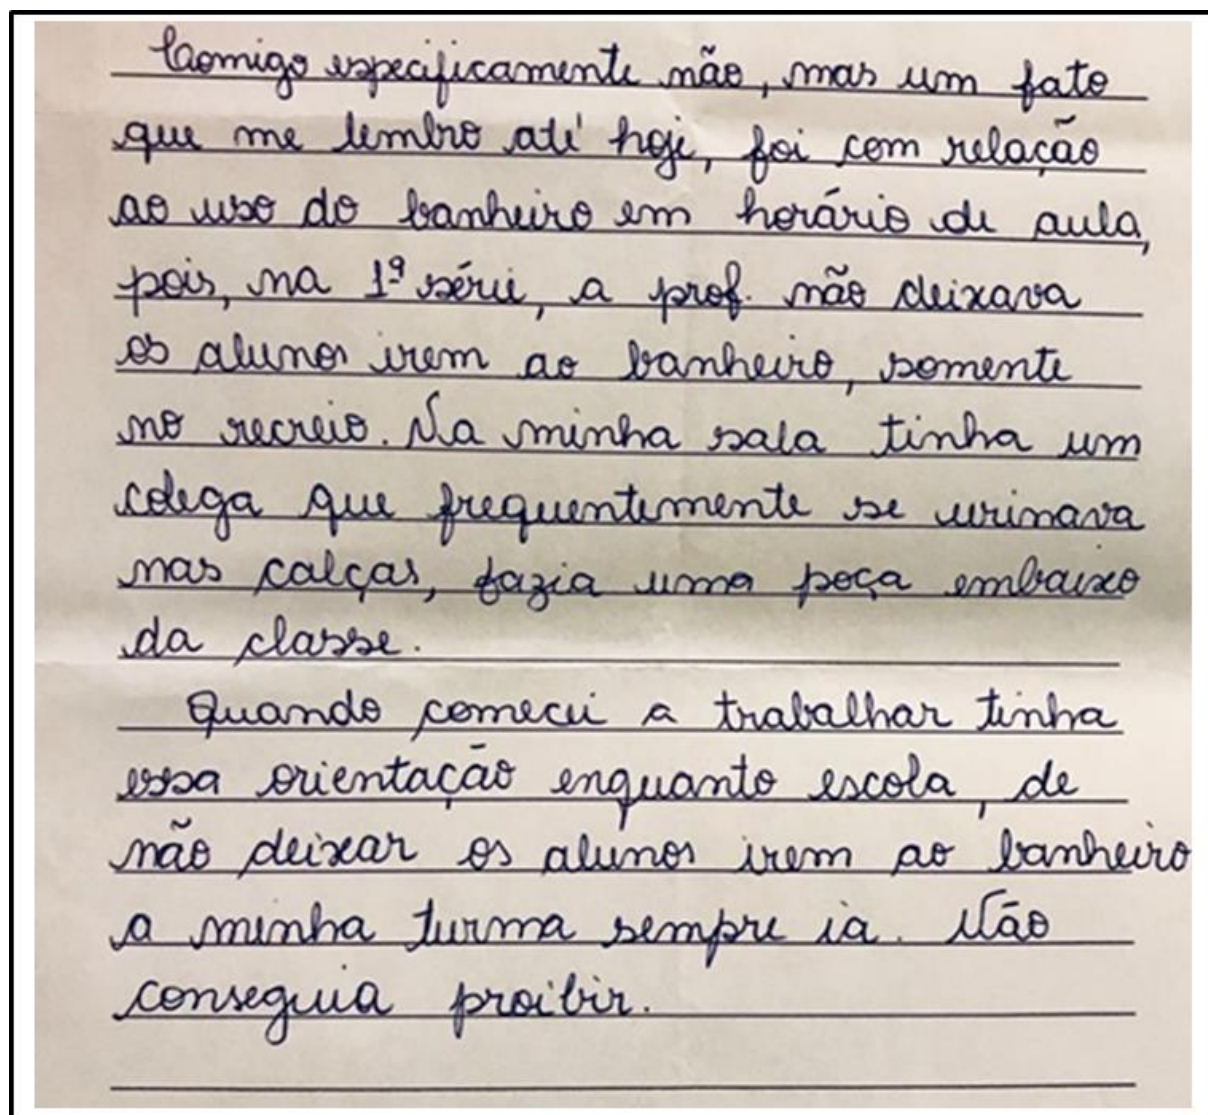 Comigo especificamente não, mas um fato
que me lembro até hoje, foi com relação
ao uso do banheiro em horário de aula,
pois, na 1ª série, a prof. não deixava
os alunos irem ao banheiro, somente
no recreio. Na minha sala tinha um
colega que frequentemente se urinava
nas calças, fazia uma poça embaixo
da classe.
Quando comecei a trabalhar tinha
essa orientação enquanto escola, de
não deixar os alunos irem ao banheiro
a minha turma sempre ia. Não
conseguia proibir.